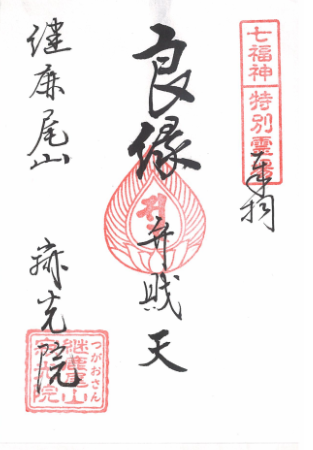 七福神 特別霊場
奉拝
良縁 弁戝天
継鹿尾山 寂光院
つがおさん
継鹿尾山
寂光院